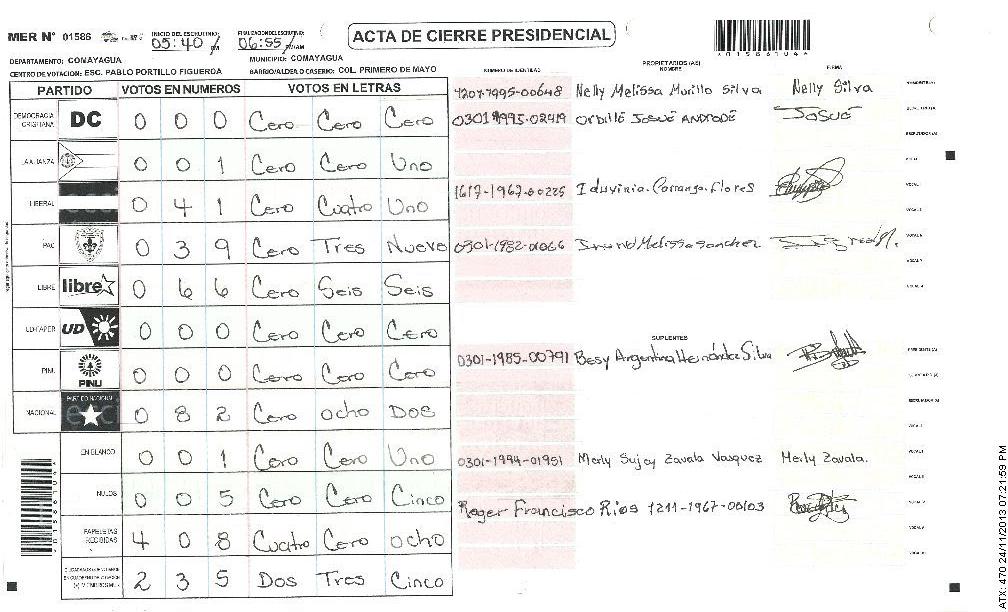 MER N° 01586 INICIO DEL ESCRUTINIO: 05:40 PM FINALIZACION DEL ESCRUTINIO: 06:55 PM/AM ACTA DE CIERRE PRESIDENCIAL
DEPARTAMENTO: COMAYAGUA MUNICIPIO: COMAYAGUA
CENTRO DE VOTACION: ESC. PABLO PORTILLO FIGUEROA BARRIO/ALDEA O CASERIO: COL. PRIMERO DE MAYO
NUMERO DE IDENTIDAD PROPIETARIOS (AS) NOMBRE FIRMA
PARTIDO VOTOS EN NUMEROS VOTOS EN LETRAS
1207-1995-00648 Nelly Melissa Murillo Silva Nelly Silva
DEMOCRACIA CRISTIANA DC 0 0 0 Cero Cero Cero
0301 1995-02419 Josué
LA ALIANZA 0 0 1 Cero Cero Uno
LIBERAL 0 4 1 Cero Cuatro Uno
1617-1967-00225 Iduvinia Carranza Flores
PAC 0 3 9 Cero Tres Nueve
0301-1982-01066 Melissa Sanchez
LIBRE libre 0 6 6 Cero Seis Seis
UD-FAPER UD 0 0 0 Cero Cero Cero
SUPLENTES
PINU PINU 0 0 0 Cero Cero Cero
0301-1985-00791 Besy Argentina Hernández Silva
NACIONAL PARTIDO NACIONAL 0 8 2 Cero ocho Dos
EN BLANCO 0 0 1 Cero Cero Uno
0301-1994-01951 Merly Sujey Zavala Vasquez Merly Zavala.
NULOS 0 0 5 Cero Cero Cinco
Roger Francisco Rios 1211-1967-00103
PAPELETAS RECIBIDAS 4 0 8 Cuatro Cero ocho
2 3 5 Dos Tres Cinco
*01586104*
ATX: 470 24/11/2013 07:21:59 PM